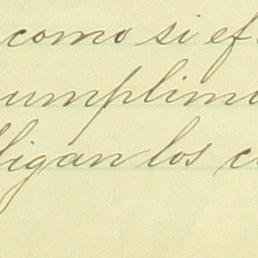 como si ef
umplim
ligan los c